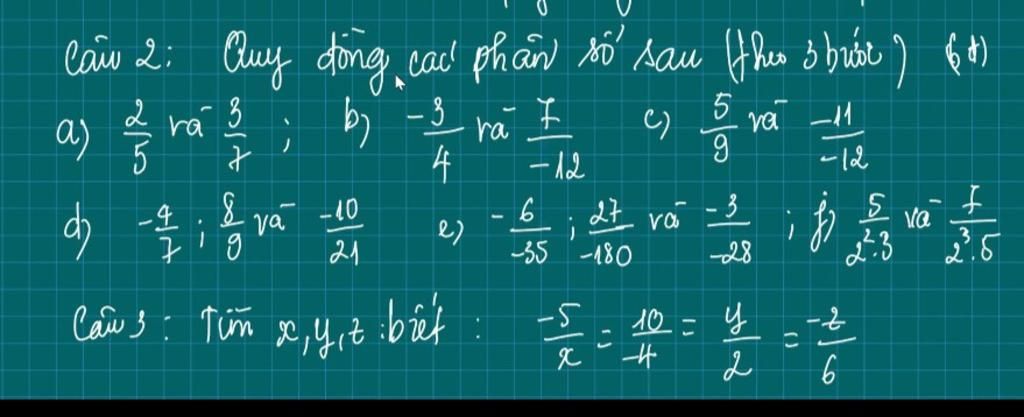 Câu 2: Quy đồng các phân số sau (theo 3 bước) (6đ)
a) 2/5 và 3/7 ; b) -3/4 và 7/-12 c) 5/9 và -11/-12
d) -4/7 ; 8/9 và -10/21 e) -6/-35 ; 27/-180 và -3/-28 ; f) 5/2².3 và 7/2³.5
Câu 3: Tìm x, y, z biết : -5/x = 10/-4 = y/2 = -z/6